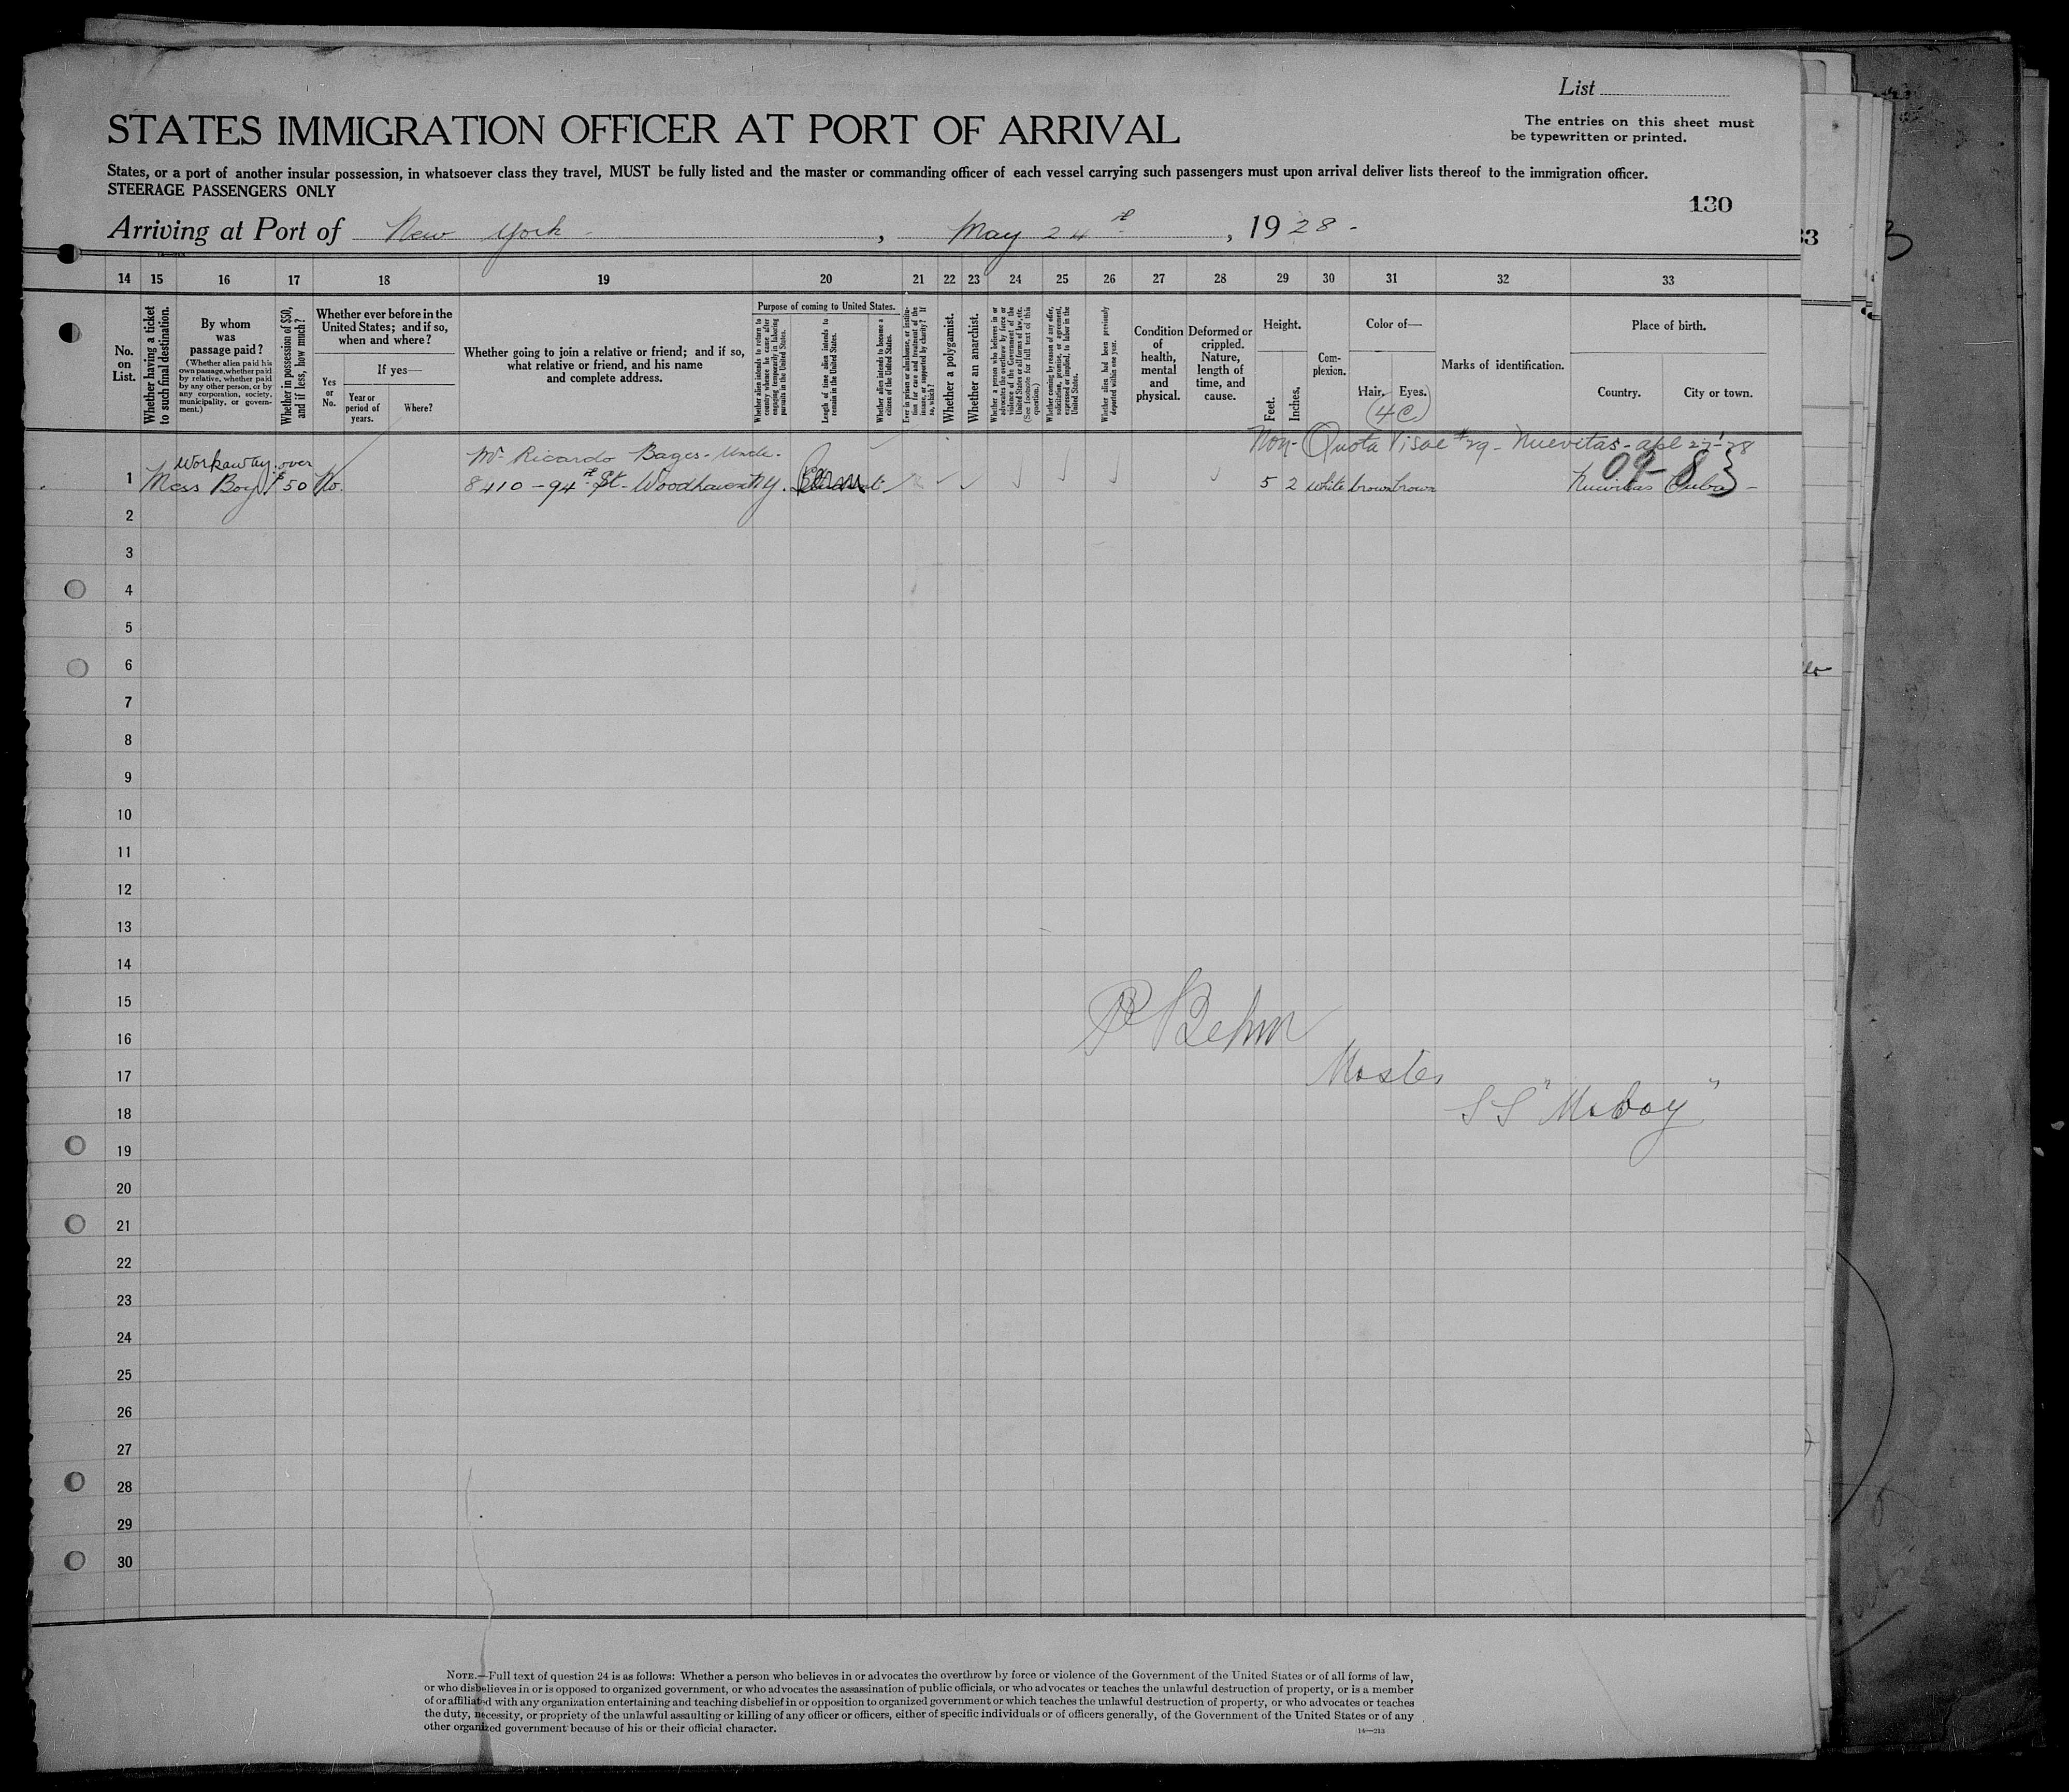 List
STATES IMMIGRATION OFFICER AT PORT OF ARRIVAL
The entries on this sheet must
be typewritten or printed.
States, or a port of another insular possession, in whatsoever class they travel, MUST be fully listed and the master or commanding officer of each vessel carrying such passengers must upon arrival deliver lists thereof to the immigration officer.
STEERAGE PASSENGERS ONLY
130
Arriving at Port of New York - , May 24 , 1928 -
33
14 15 16 17 18 19 20 21 22 23 24 25 26 27 28 29 30 31 32 33
No. on List.
Whether having a ticket to such final destination.
By whom was passage paid?
(Whether alien paid his own passage, whether paid by relative, whether paid by any other person, or by any corporation, society, municipality, or government.)
Whether in possession of $50, and if less, how much?
Whether ever before in the United States; and if so, when and where?
Yes or No.
If yes—
Year or period of years.
Where?
Whether going to join a relative or friend; and if so, what relative or friend, and his name and complete address.
Purpose of coming to United States.
Whether alien intends to return to country whence he came after engaging temporarily in laboring pursuits in the United States.
Length of time alien intends to remain in the United States.
Whether alien intends to become a citizen of the United States.
Ever in prison or almshouse, or institution for care and treatment of the insane, or supported by charity? If so, which?
Whether a polygamist.
Whether an anarchist.
Whether a person who believes in or advocates the overthrow by force or violence of the Government of the United States or all forms of law, etc. (See footnote for full text of this question.)
Whether coming by reason of any offer, solicitation, promise, or agreement, expressed or implied, to labor in the United States.
Whether alien had been previously deported within one year.
Condition of health, mental and physical.
Deformed or crippled. Nature, length of time, and cause.
Height.
Feet. Inches.
Complexion.
Color of—
Hair. Eyes.
Marks of identification.
Place of birth.
Country. City or town.
(4C)
Non-Quota Visae #29 - Nuevitas - apl 27-'28
Workaway over Mr Ricardo Bages - Uncle.
1 Mess Boy $50 No. 8410 - 94 St - Woodhaven N.Y. 5 2 white brown brown Nuevitas Cuba -
2
3
4
5
6
7
8
9
10
11
12
13
14
15
16
17
18
19
20
21
22
23
24
25
26
27
28
29
30
P Behm
Master
SS "Mabay"
NOTE.—Full text of question 24 is as follows: Whether a person who believes in or advocates the overthrow by force or violence of the Government of the United States or of all forms of law,
or who disbelieves in or is opposed to organized government, or who advocates the assassination of public officials, or who advocates or teaches the unlawful destruction of property, or is a member
of or affiliated with any organization entertaining and teaching disbelief in or opposition to organized government or which teaches the unlawful destruction of property, or who advocates or teaches
the duty, necessity, or propriety of the unlawful assaulting or killing of any officer or officers, either of specific individuals or of officers generally, of the Government of the United States or of any
other organized government because of his or their official character.
14—213